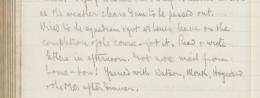 as the weather clears I am to be passed out.
Tried to do squadron spot 48 hours leave on the
completion of the course & got it. Read & wrote
letters in afternoon. Got more mail from
home - bon! Yarned with Watson,
& the M.O. after dinner.